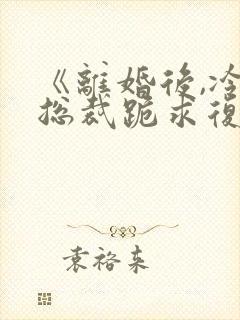 《離婚後,冷
总裁跪求復
袁裕来